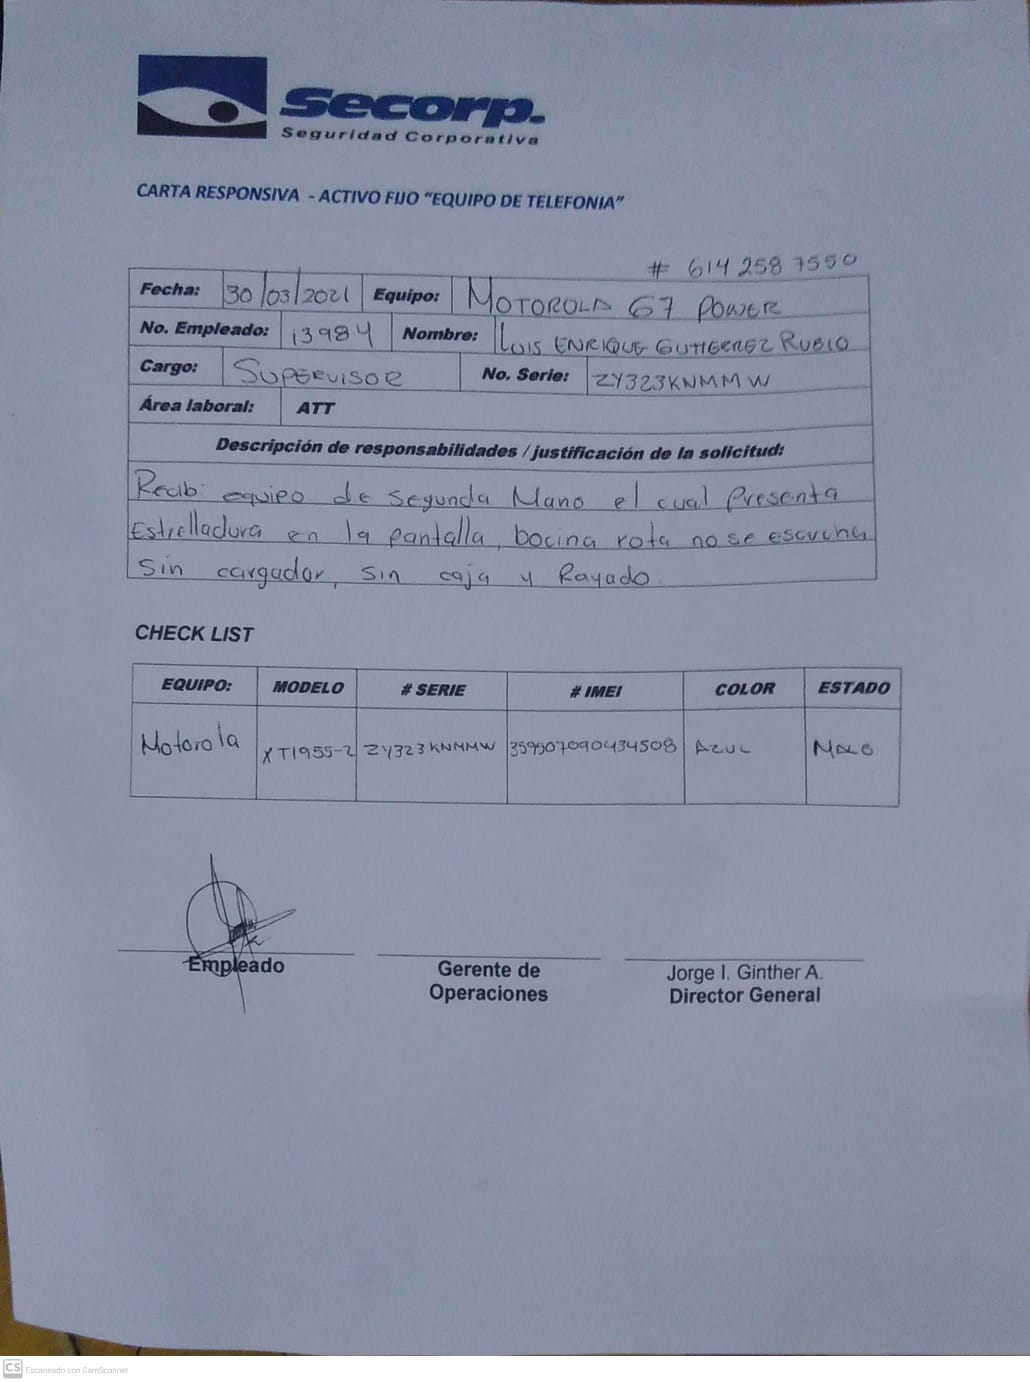 Secorp.
Seguridad Corporativa
CARTA RESPONSIVA - ACTIVO FIJO "EQUIPO DE TELEFONIA"
# 614 258 7550
Fecha: 30/03/2021 Equipo: MOTOROLA G7 POWER
No. Empleado: 13984 Nombre: LUIS ENRIQUE GUTIERREZ RUBIO
Cargo: SUPERVISOR No. Serie: ZY323KNMMW
Área laboral: ATT
Descripción de responsabilidades / justificación de la solicitud:
Recibi equipo de segunda Mano el cual Presenta
Estrelladura en la pantalla, bocina rota no se escucha
Sin cargador, sin caja y Rayado.
CHECK LIST
EQUIPO: MODELO # SERIE # IMEI COLOR ESTADO
Motorola XT1955-2 ZY323KNMMW 359507090434508 AZUL MALO
Empleado
Gerente de Operaciones
Jorge I. Ginther A.
Director General
CS Escaneado con CamScanner